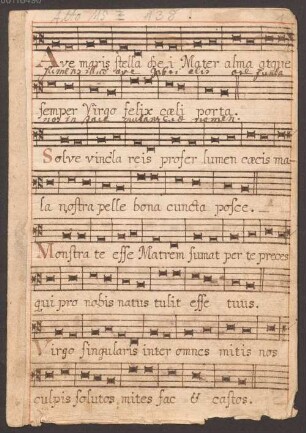 Ave maris stella dei Mater alma atque
Sumens illud ave Gabri elis ore funda
semper Virgo felix cæli porta.
nos in pace mutans Evæ nomen.
Solve vincla reis profer lumen cæcis ma-
la nostra pelle bona cuncta posce.
Monstra te esse Matrem sumat per te preces
qui pro nobis natus tulit esse tuus.
Virgo singularis inter omnes mitis nos
culpis solutos, mites fac & castos.